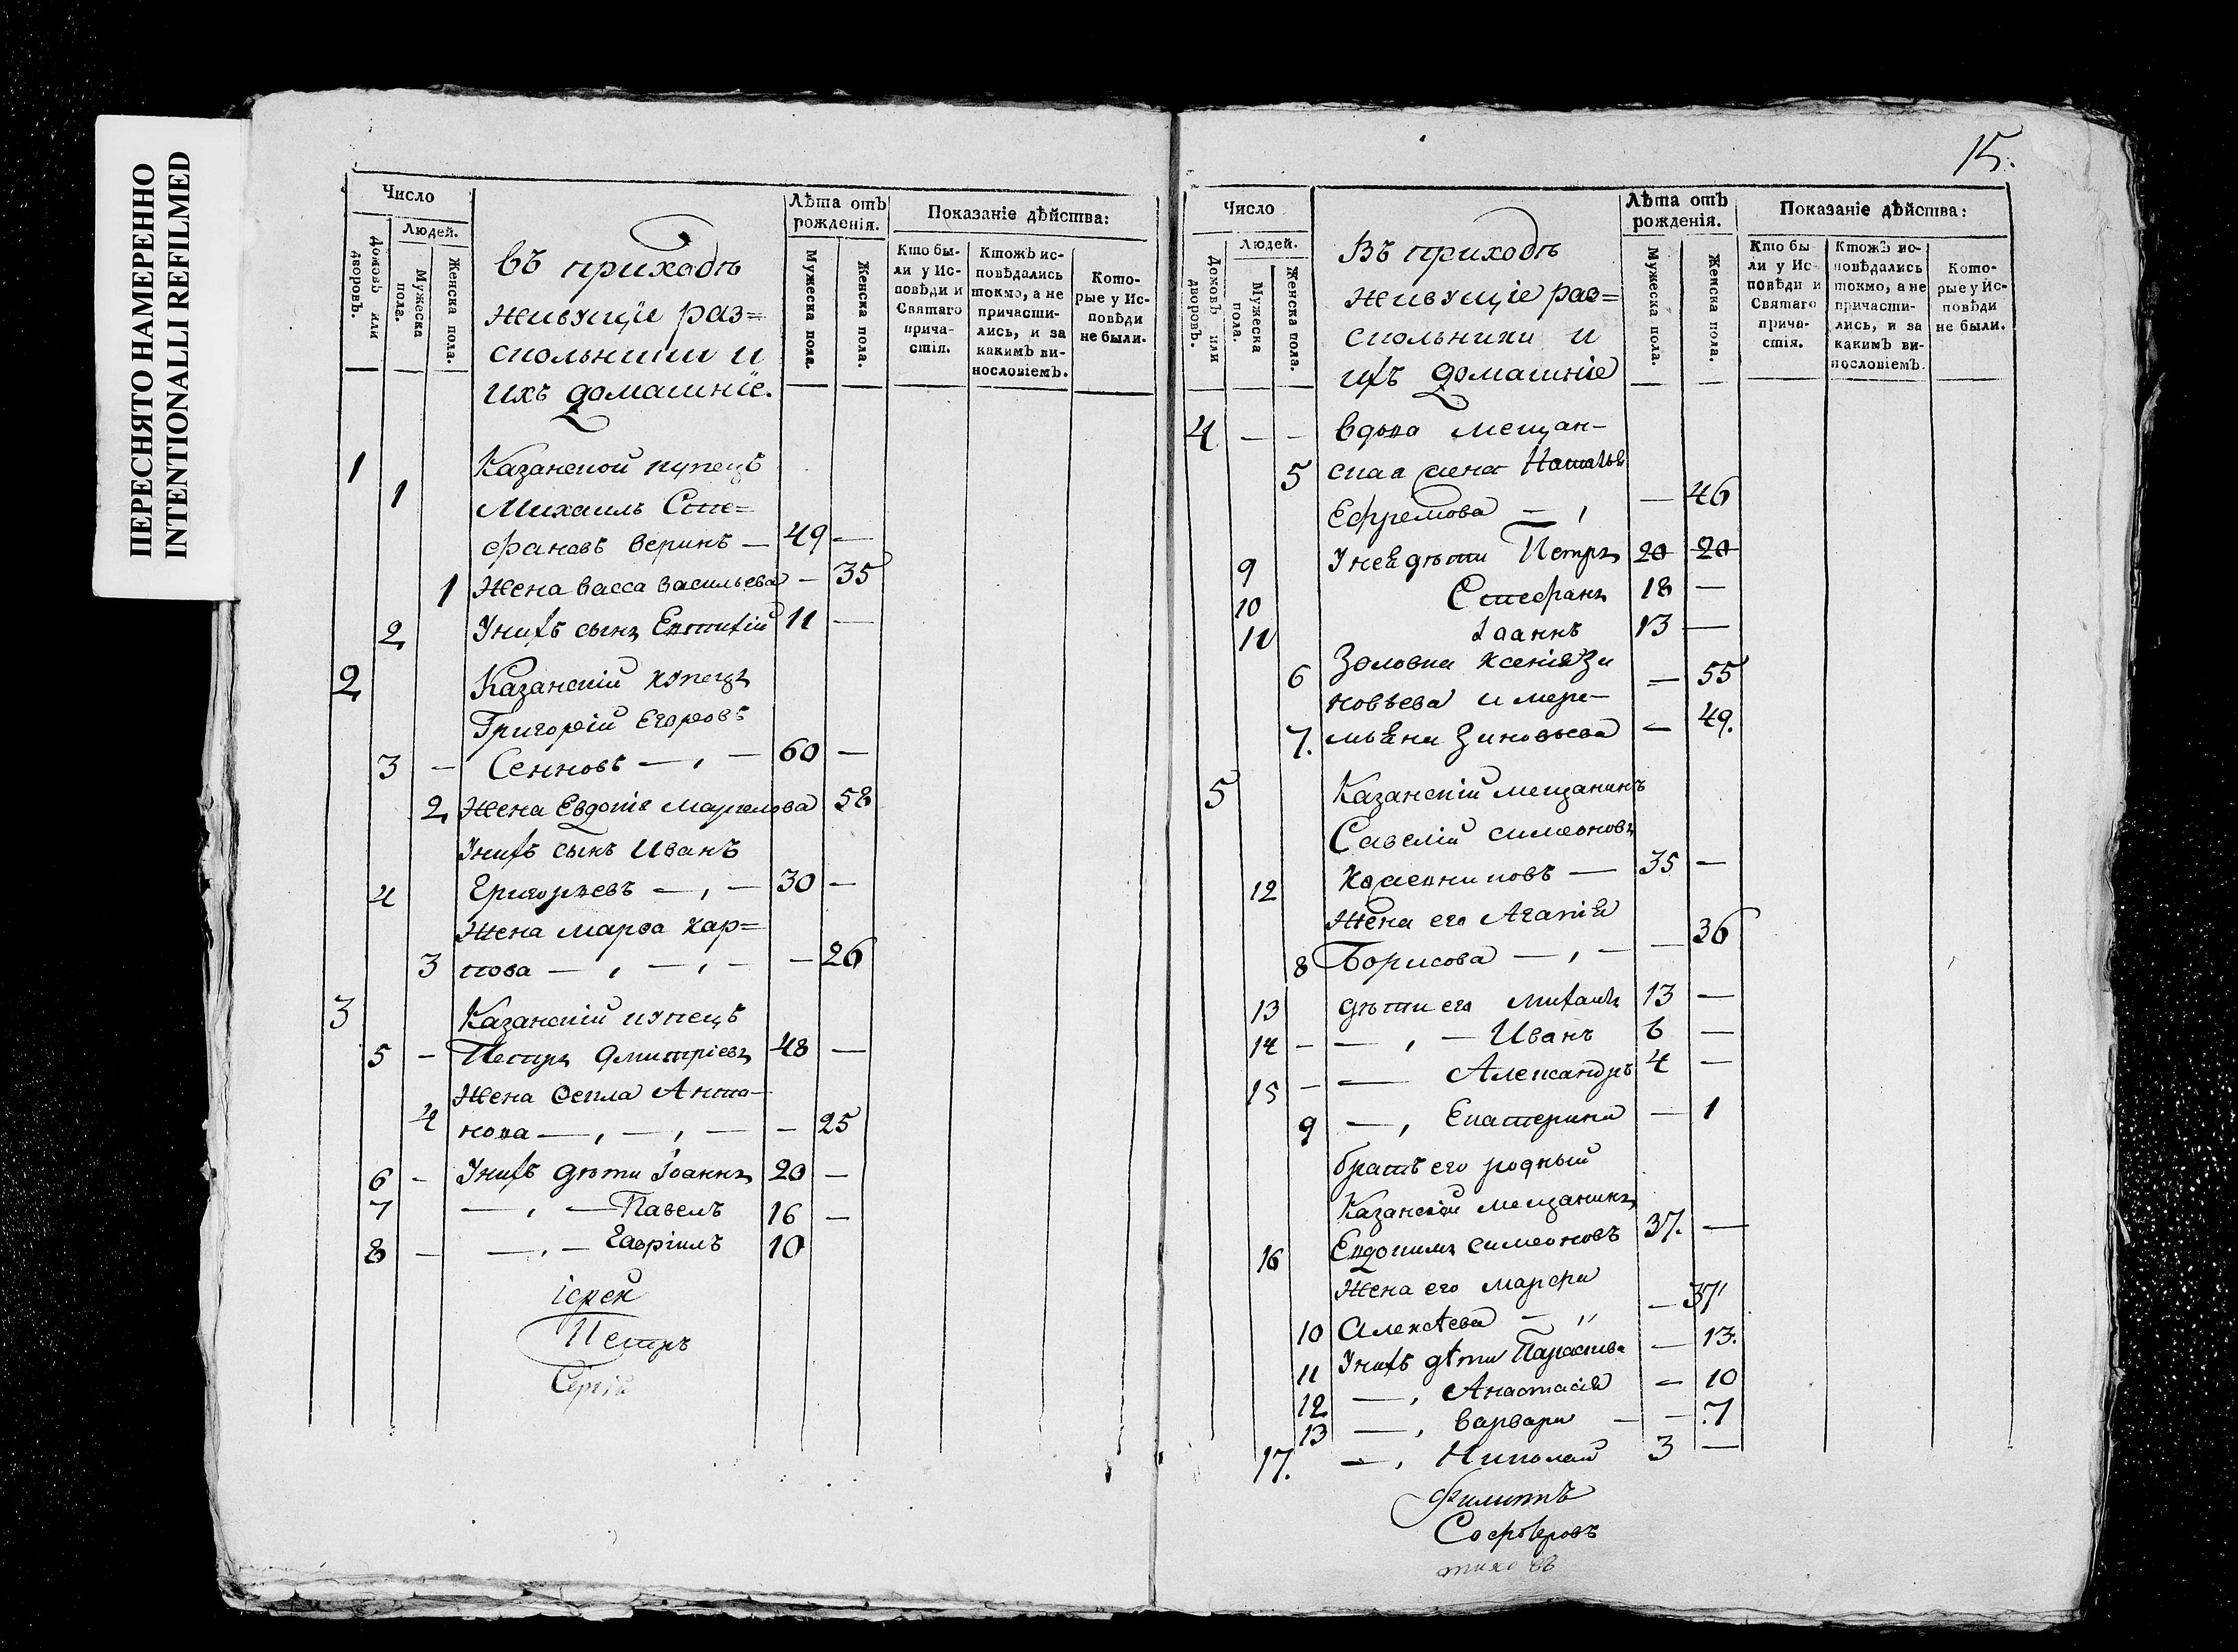 ПЕРЕСНЯТО НАМЕРЕННО
INTENTIONALLI REFILMED
Число
Людей.
Домовъ или дворовъ.
Мужеска пола.
Женска пола.
въ приходѣ
живущіе раз=
скольники и
ихъ домашніе.
Лѣта отъ рожденія.
Мужеска пола.
Женска пола.
Показаніе дѣйства:
Кто бы-
ли у Ис-
повѣди и
Святаго
прича-
стія.
Ктожъ ис-
повѣдались
токмо, а не
причасти-
лись, и за
какимъ ви-
нословіемъ.
Кото-
рые у Ис-
повѣди
не были.
1 Казанской купецъ
1 Михаилъ Сте=
фановъ веринъ — 49 —
1 Жена васса васильева — 35
2 Унихъ сынъ Евтихій 11 —
2 Казанскій купецъ
Григорій Егоровъ
3 — Сенновъ — , — 60 —
2 Жена Евдокія Маркелова 58
Унихъ сынъ Иванъ
4 Григорьевъ — , — 30 —
Жена марѳа кар=
3 пова — , — , — — 26
3 Казанскій купецъ
5 — Петръ Дмитріевъ 48 —
Жена Ѳекла Анто-
4 нова — , — , — — 25
6 — Унихъ дѣти Іоаннъ 20 —
7 — , — Павелъ 16 —
8 — — , — Гавріилъ 10
іерей
Петръ
Сергій
15.
Число
Людей.
Домовъ или дворовъ.
Мужеска пола.
Женска пола.
Въ приходѣ
живущіе раз=
скольники и
ихъ домашніе
Лѣта отъ рожденія.
Мужеска пола.
Женска пола.
Показаніе дѣйства:
Кто бы-
ли у Ис-
повѣди и
Святаго
прича-
стія.
Ктожъ ис-
повѣдались
токмо, а не
причасти-
лись, и за
какимъ ви-
нословіемъ.
Кото-
рые у Ис-
повѣди
не были.
4 — — вдова мещан-
5 ская жена Наталья
Ефремова — , — 46
9 Унея дѣти Петръ 20 20
10 Стефанъ 18 —
11 Іоаннъ 13 —
6 Золовка ксенія Зи
новьева и мере- — 55
7. мьяна Зиновьева — 49.
5 Казанскій мещанинъ
Савелій симеоновъ
12 — 35 —
Жена его Агапія
8 Борисова — , — — 36
13 дѣти его михаилъ 13 —
14 — — , — Иванъ 6 —
15 — — Александръ 4 —
9 — , Екатерина — 1
братъ его родный
Казанскій мещанинъ
16 Евдокимъ симеоновъ 37. —
Жена его марфа
10 Алексѣева — ,, — 37
11 Унихъ дѣти Параскева — 13.
12 — , Анастасія — 10
13 — , варвара — — 7
17. — , Николай 3 —
Филиппъ